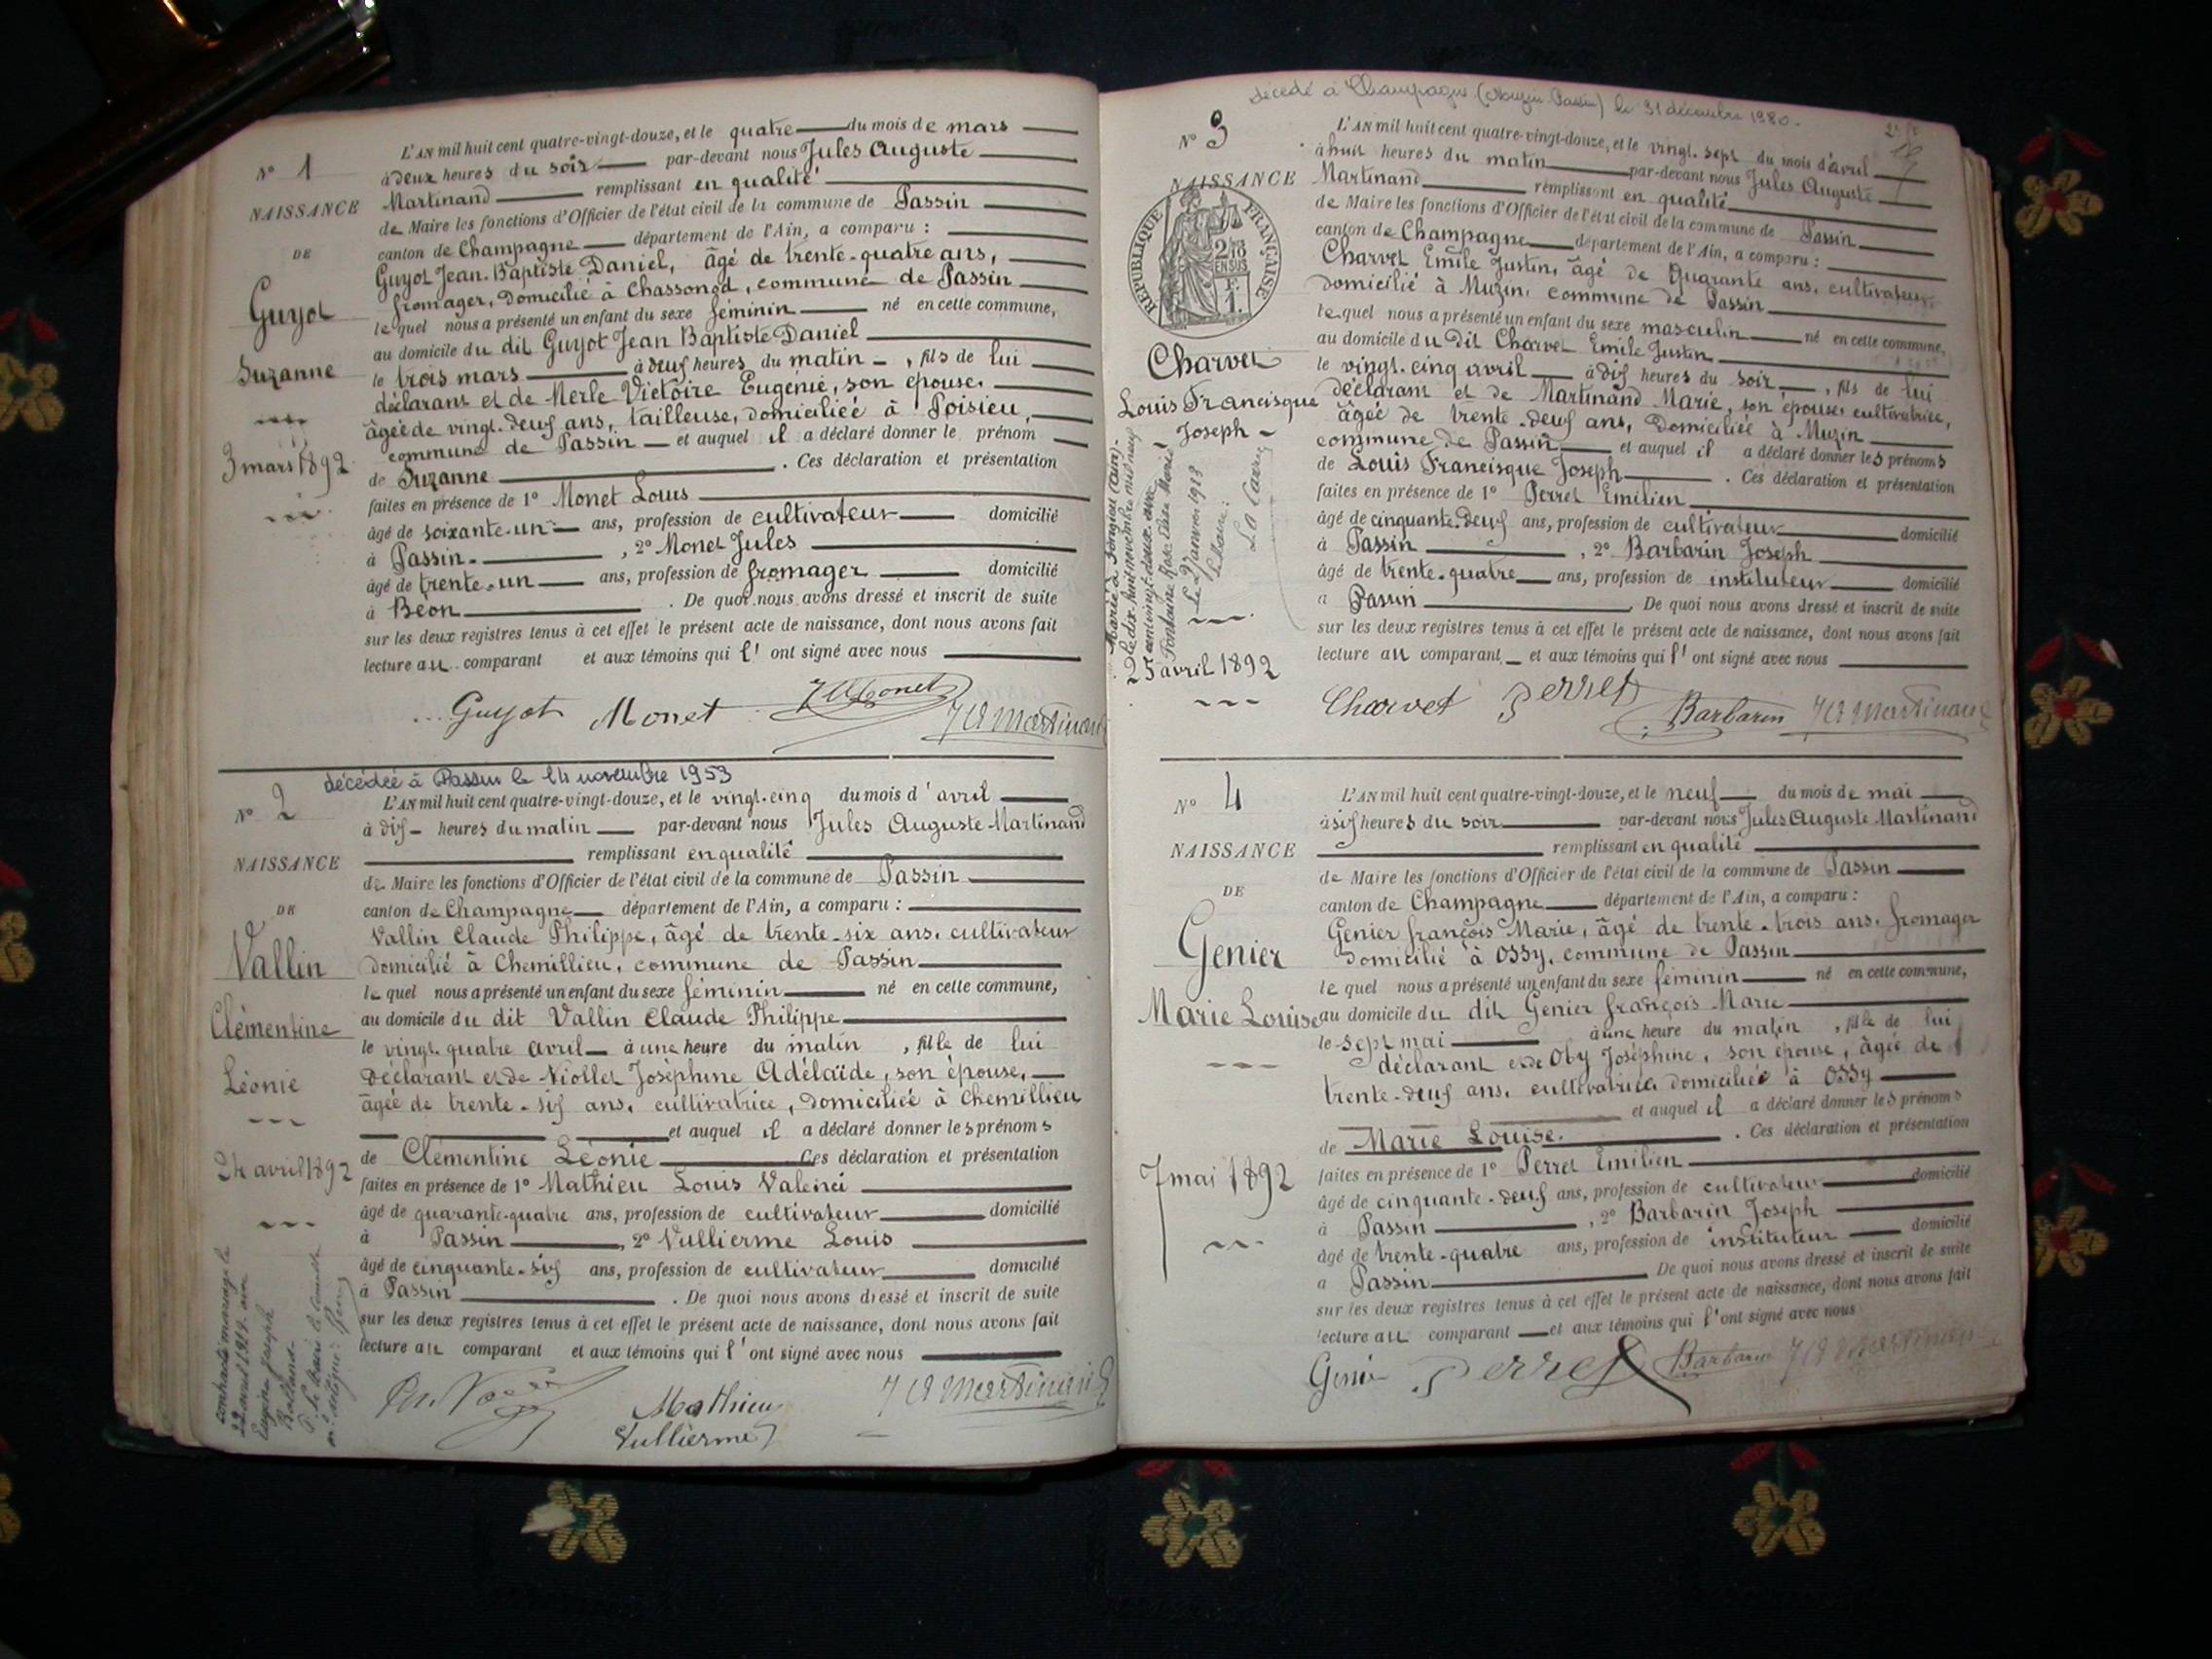 N° 1
NAISSANCE
DE
Guyot
Suzanne
3 mars 1892
L'AN mil huit cent quatre-vingt-douze, et le quatre du mois de mars
à deux heures du soir par-devant nous Jules Auguste
Martinand remplissant en qualité
de Maire les fonctions d'Officier de l'état civil de la commune de Passin
canton de Champagne département de l'Ain, a comparu :
Guyot Jean-Baptiste Daniel, âgé de trente-quatre ans,
fromager, domicilié à Chassonod, commune de Passin
lequel nous a présenté un enfant du sexe féminin né en cette commune,
au domicile du dit Guyot Jean Baptiste Daniel
le trois mars à deux heures du matin, fils de lui
déclarant et de Merle Victoire Eugénie, son épouse,
âgée de vingt-deux ans, tailleuse, domiciliée à Poisieu,
commune de Passin et auquel il a déclaré donner le prénom
de Suzanne. Ces déclaration et présentation
faites en présence de 1° Monet Louis
âgé de soixante-un ans, profession de cultivateur domicilié
à Passin, 2° Monet Jules
âgé de trente-un ans, profession de fromager domicilié
à Béon. De quoi nous avons dressé et inscrit de suite
sur les deux registres tenus à cet effet le présent acte de naissance, dont nous avons fait
lecture au comparant et aux témoins qui l'ont signé avec nous
Guyot Monet J Monet J A Martinand
décédée à Passin le 14 novembre 1953
N° 2
NAISSANCE
DE
Vallin
Clémentine
Léonie
24 avril 1892
contracté mariage le
22 avril 1919 avec
Eugène Joseph
L'AN mil huit cent quatre-vingt-douze, et le vingt-cinq du mois d'avril
à dix heures du matin par-devant nous Jules Auguste Martinand
remplissant en qualité
de Maire les fonctions d'Officier de l'état civil de la commune de Passin
canton de Champagne département de l'Ain, a comparu :
Vallin Claude Philippe, âgé de trente-six ans, cultivateur
domicilié à Chemillieu, commune de Passin
lequel nous a présenté un enfant du sexe féminin né en cette commune,
au domicile du dit Vallin Claude Philippe
le vingt-quatre avril à une heure du matin, fille de lui
déclarant et de Niollet Joséphine Adélaïde, son épouse,
âgée de trente-six ans, cultivatrice, domiciliée à Chemillieu
et auquel il a déclaré donner les prénoms
de Clémentine Léonie Ces déclaration et présentation
faites en présence de 1° Mathieu Louis
âgé de quarante-quatre ans, profession de cultivateur domicilié
à Passin, 2° Vullierme Louis
âgé de cinquante-six ans, profession de cultivateur domicilié
à Passin. De quoi nous avons dressé et inscrit de suite
sur les deux registres tenus à cet effet le présent acte de naissance, dont nous avons fait
lecture au comparant et aux témoins qui l'ont signé avec nous
Mathieu J A Martinand
Vullierme
décédé à Champagne (Muzin Passin) le 31 décembre 1980.
N° 3
NAISSANCE
RÉPUBLIQUE FRANÇAISE
EN SUS
Charvet
Louis Francisque
Joseph
Marié à Jongieu (Ain)
le dix-huit novembre mil neuf
cent vingt-deux avec
Fontaine Rose Elise Marie
Le 2 janvier 1923
Le Maire :
25 avril 1892
L'AN mil huit cent quatre-vingt-douze, et le vingt-sept du mois d'avril
à huit heures du matin par-devant nous Jules Auguste
Martinand remplissant en qualité
de Maire les fonctions d'Officier de l'état civil de la commune de Passin
canton de Champagne département de l'Ain, a comparu :
Charvet Emile Justin, âgé de quarante ans, cultivateur,
domicilié à Muzin, commune de Passin
lequel nous a présenté un enfant du sexe masculin né en cette commune,
au domicile du dit Charvet Emile Justin
le vingt-cinq avril à dix heures du soir, fils de lui
déclarant et de Martinand Marie, son épouse, cultivatrice,
âgée de trente-deux ans, domiciliée à Muzin
commune de Passin et auquel il a déclaré donner les prénoms
de Louis Francisque Joseph. Ces déclaration et présentation
faites en présence de 1° Perret Emilien
âgé de cinquante-deux ans, profession de cultivateur domicilié
à Passin, 2° Barbarin Joseph
âgé de trente-quatre ans, profession de instituteur domicilié
à Passin. De quoi nous avons dressé et inscrit de suite
sur les deux registres tenus à cet effet le présent acte de naissance, dont nous avons fait
lecture au comparant et aux témoins qui l'ont signé avec nous
Charvet Perret Barbarin J A Martinand
N° 4
NAISSANCE
DE
Genier
Marie Louise
7 mai 1892
L'AN mil huit cent quatre-vingt-douze, et le neuf du mois de mai
à six heures du soir par-devant nous Jules Auguste Martinand
remplissant en qualité
de Maire les fonctions d'Officier de l'état civil de la commune de Passin
canton de Champagne département de l'Ain, a comparu :
Genier François Marie, âgé de trente-trois ans, fromager
domicilié à Ossy, commune de Passin
lequel nous a présenté un enfant du sexe féminin né en cette commune,
au domicile du dit Genier François Marie
le sept mai à une heure du matin, fille de lui
déclarant et de Oby Joséphine, son épouse, âgée de
trente-deux ans, cultivatrice domiciliée à Ossy
et auquel il a déclaré donner les prénoms
de Marie Louise. Ces déclaration et présentation
faites en présence de 1° Perret Emilien
âgé de cinquante-deux ans, profession de cultivateur domicilié
à Passin, 2° Barbarin Joseph
âgé de trente-quatre ans, profession de instituteur domicilié
à Passin De quoi nous avons dressé et inscrit de suite
sur les deux registres tenus à cet effet le présent acte de naissance, dont nous avons fait
lecture au comparant et aux témoins qui l'ont signé avec nous
Genier Perret Barbarin J A Martinand